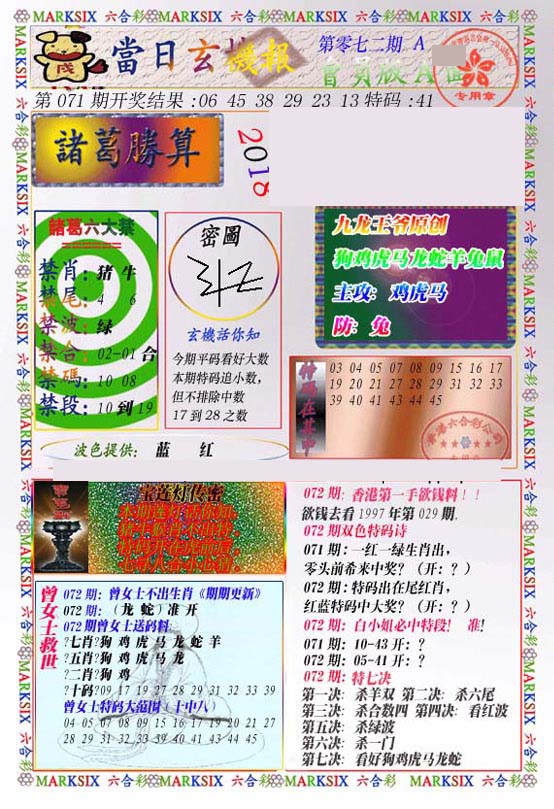 MARKSIX 六合彩 MARKSIX 六合彩 MARKSIX 六合彩 MARKSIX 六合彩
當日玄機報
第零七二期. A
會員版A面
专用章
第 071 期开奖结果 :06 45 38 29 23 13 特码 :41
諸葛勝算
2018
諸葛六大禁
禁肖: 猪 牛
禁尾: 4 6
禁波: 绿
禁合: 02-01 合
禁碼: 10 08
禁段: 10 到 19
密圖
玄機話你知
今期平码看好大数
本期特码追小数,
但不排除中数
17 到 28 之数
九龙王爷原创
狗鸡虎马龙蛇羊兔鼠
主攻: 鸡虎马
防: 兔
特码在其中
03 04 05 07 08 09 15 16 17
19 20 21 27 28 29 31 32 33
39 40 41 43 44 45
波色提供: 蓝 红
宝莲灯传密
072 期: 曾女士不出生肖《期期更新》
(龙 蛇) 准 开
072 期曾女士送码料:
?七肖?狗 鸡 虎 马 龙 蛇 羊
?五肖?狗 鸡 虎 马 龙
?二肖?狗 鸡
?十码?09 17 19 27 28 29 31 32 33 39
曾女士特码大范围 (十中八)
04 05 07 08 09 15 16 17 19 20 21 27
28 29 31 32 33 39 40 41 43 44 45
曾女士救世
072 期: 香港第一手欲钱料 ! !
欲钱去看 1997 年第 029 期.
072 期双色特码诗
071 期: 一红一绿生肖出,
零头前希来中奖? (开: ? )
072 期: 特码出在尾红肖,
红蓝特码中大奖? (开: ? )
072 期: 白小姐必中特段! 准!
071 期: 10-43 开: ?
072 期: 05-41 开: ?
072 期: 特七决
第一决: 杀羊双 第二决: 杀六尾
第三决: 杀合数四 第四决: 看红波
第五决: 杀绿波
第六决: 杀一门
第七决: 看好狗鸡虎马龙蛇
MARKSIX 六合彩 MARKSIX 六合彩 MARKSIX 六合彩 MARKSIX 六合彩